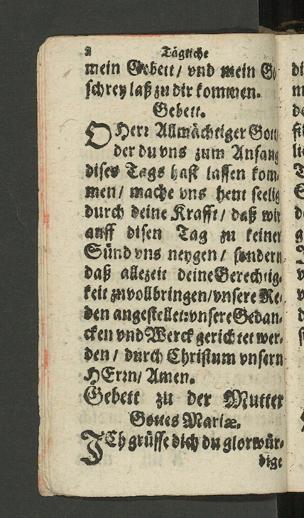 2 Tägliche
mein Gebett / vnd mein Ge
schrey laß zu dir kommen.
Gebett.
O HErr Allmächtiger Gott
der du vns zum Anfang
dises Tags hast lassen kom
men / mache vns heut seelig
durch deine Krafft / daß wir
auff disen Tag zu keiner
Sünd vns neygen / sondern
daß allezeit deine Gerechtig
keit zuvollbringen / vnsere Re
den angestellet: vnsere Gedan
cken vnd Werck gerichtet wer
den / durch Christum vnsern
HErrn / Amen.
Gebett zu der Mutter
Gottes Mariæ.
ICh grüsse dich du glorwür
dige